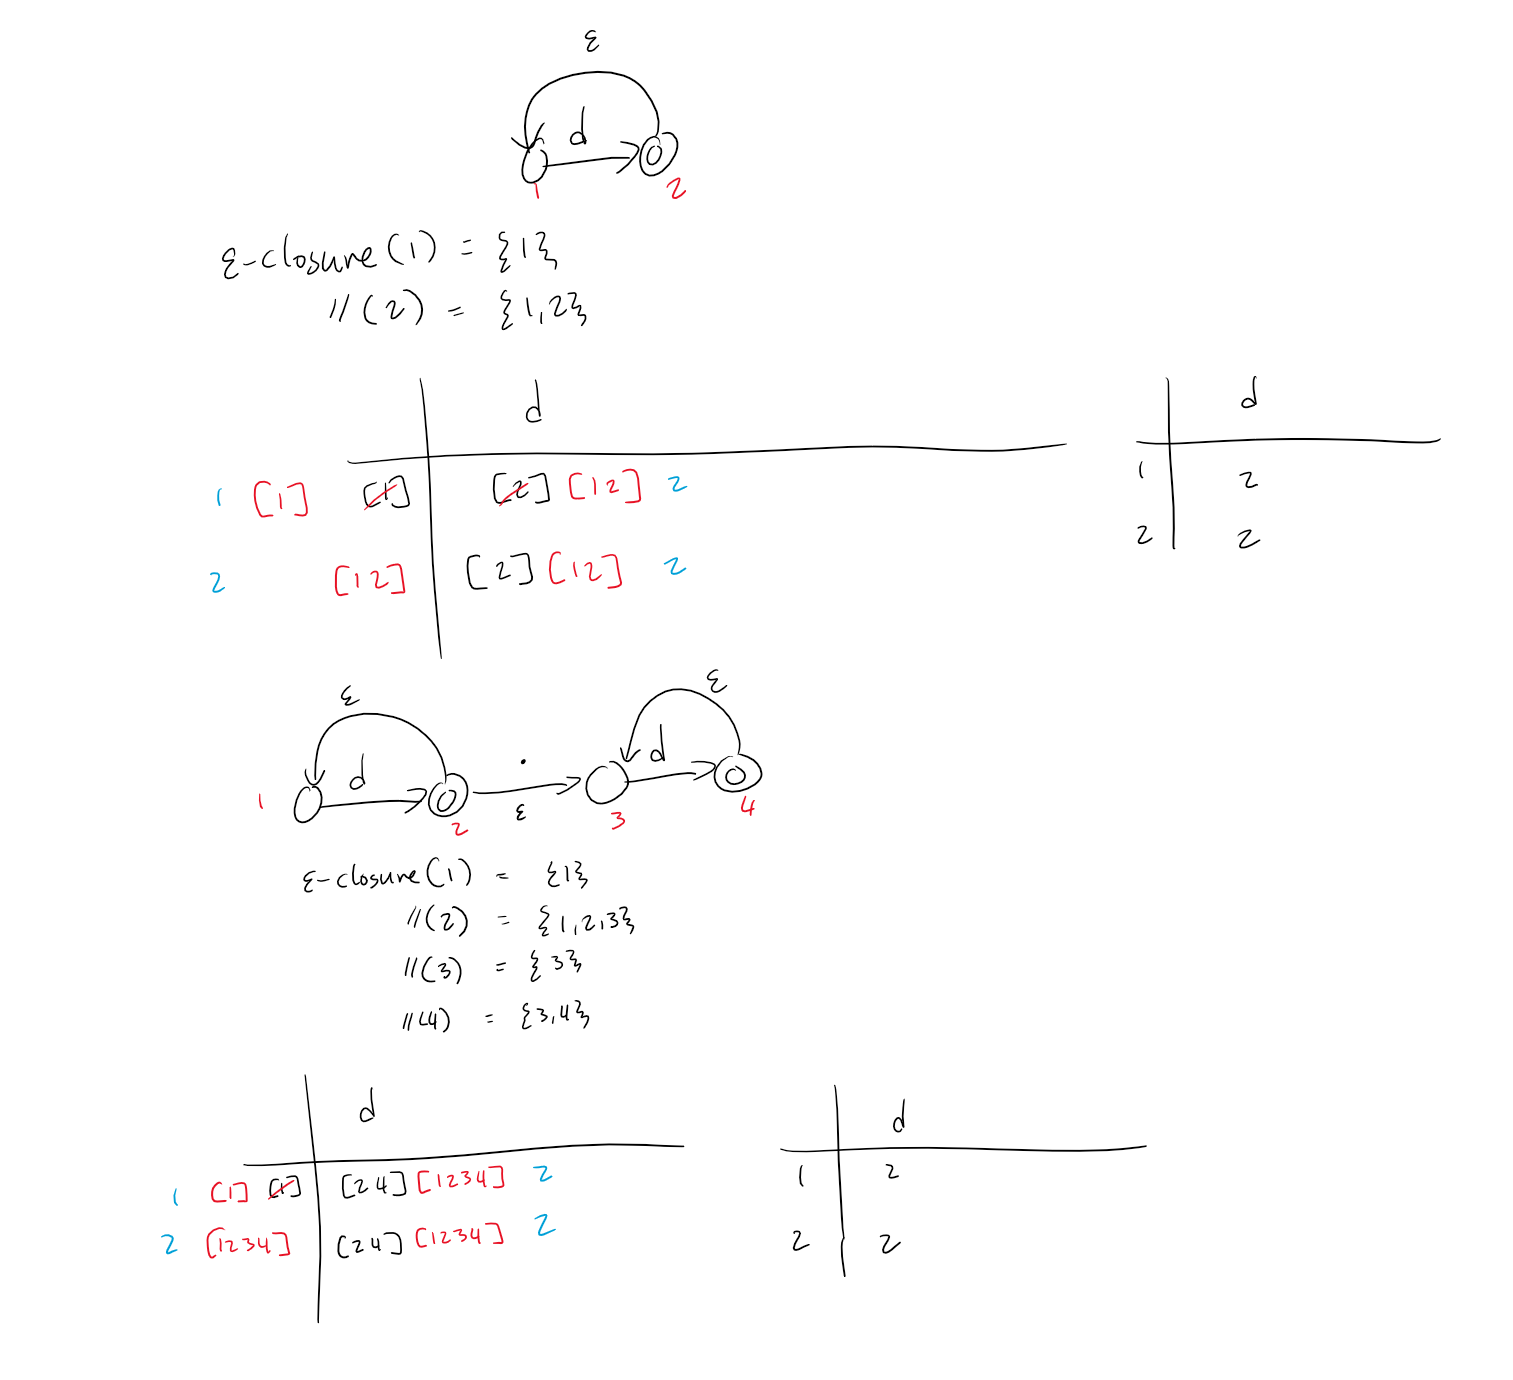 ε
d
1 2
ε-closure(1) = {1}
〃(2) = {1,2}
d
1 [1] [1] [2] [12] 2
2 [12] [2] [12] 2
d
1 2
2 2
ε ε
d . d
1 2 ε 3 4
ε-closure(1) = {1}
〃(2) = {1,2,3}
〃(3) = {3}
〃(4) = {3,4}
d
1 [1] [1] [24] [1234] 2
2 [1234] [24] [1234] 2
d
1 2
2 2